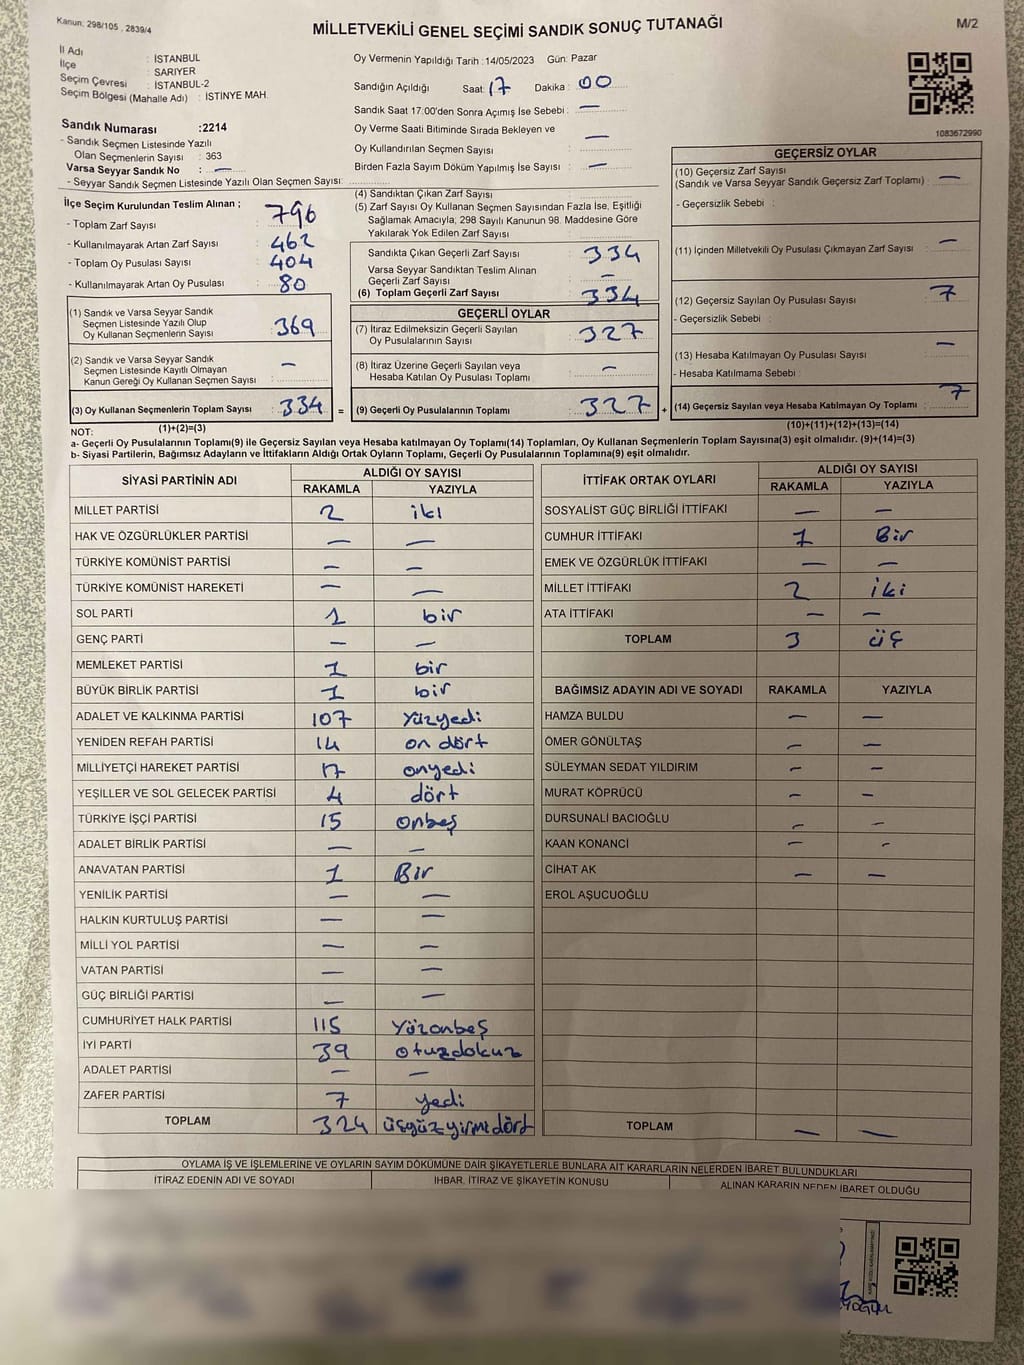 Kanun: 298/105 , 2839/4
MİLLETVEKİLİ GENEL SEÇİMİ SANDIK SONUÇ TUTANAĞI
M/2
İl Adı : İSTANBUL
İlçe : SARIYER
Seçim Çevresi : İSTANBUL-2
Seçim Bölgesi (Mahalle Adı) : İSTİNYE MAH.
Oy Vermenin Yapıldığı Tarih :14/05/2023 Gün: Pazar
Sandığın Açıldığı Saat: 17 Dakika : 00
Sandık Saat 17:00'den Sonra Açımış İse Sebebi : —
Oy Verme Saati Bitiminde Sırada Bekleyen ve
Oy Kullandırılan Seçmen Sayısı : —
Birden Fazla Sayım Döküm Yapılmış İse Sayısı : —
1083672990
Sandık Numarası :2214
- Sandık Seçmen Listesinde Yazılı
Olan Seçmenlerin Sayısı : 363
Varsa Seyyar Sandık No : —
- Seyyar Sandık Seçmen Listesinde Yazılı Olan Seçmen Sayısı:
İlçe Seçim Kurulundan Teslim Alınan ;
- Toplam Zarf Sayısı : 796
- Kullanılmayarak Artan Zarf Sayısı : 462
- Toplam Oy Pusulası Sayısı : 404
- Kullanılmayarak Artan Oy Pusulası : 80
(1) Sandık ve Varsa Seyyar Sandık
Seçmen Listesinde Yazılı Olup
Oy Kullanan Seçmenlerin Sayısı : 369
(2) Sandık ve Varsa Seyyar Sandık
Seçmen Listesinde Kayıtlı Olmayan
Kanun Gereği Oy Kullanan Seçmen Sayısı : —
(3) Oy Kullanan Seçmenlerin Toplam Sayısı : 334 =
(1)+(2)=(3)
(4) Sandıktan Çıkan Zarf Sayısı :
(5) Zarf Sayısı Oy Kullanan Seçmen Sayısından Fazla İse, Eşitliği
Sağlamak Amacıyla; 298 Sayılı Kanunun 98. Maddesine Göre
Yakılarak Yok Edilen Zarf Sayısı :
Sandıkta Çıkan Geçerli Zarf Sayısı : 334
Varsa Seyyar Sandıktan Teslim Alınan
Geçerli Zarf Sayısı : —
(6) Toplam Geçerli Zarf Sayısı : 334
GEÇERLİ OYLAR
(7) İtiraz Edilmeksizin Geçerli Sayılan
Oy Pusulalarının Sayısı : 327
(8) İtiraz Üzerine Geçerli Sayılan veya
Hesaba Katılan Oy Pusulası Toplamı : —
(9) Geçerli Oy Pusulalarının Toplamı : 327 +
GEÇERSİZ OYLAR
(10) Geçersiz Zarf Sayısı
(Sandık ve Varsa Seyyar Sandık Geçersiz Zarf Toplamı) : —
- Geçersizlik Sebebi :
(11) İçinden Milletvekili Oy Pusulası Çıkmayan Zarf Sayısı : —
(12) Geçersiz Sayılan Oy Pusulası Sayısı : 7
- Geçersizlik Sebebi :
(13) Hesaba Katılmayan Oy Pusulası Sayısı : —
- Hesaba Katılmama Sebebi :
(14) Geçersiz Sayılan veya Hesaba Katılmayan Oy Toplamı : 7
(10)+(11)+(12)+(13)=(14)
NOT:
a- Geçerli Oy Pusulalarının Toplamı(9) ile Geçersiz Sayılan veya Hesaba katılmayan Oy Toplamı(14) Toplamları, Oy Kullanan Seçmenlerin Toplam Sayısına(3) eşit olmalıdır. (9)+(14)=(3)
b- Siyasi Partilerin, Bağımsız Adayların ve İttifakların Aldığı Ortak Oyların Toplamı, Geçerli Oy Pusulalarının Toplamına(9) eşit olmalıdır.
SİYASİ PARTİNİN ADI ALDIĞI OY SAYISI
RAKAMLA YAZIYLA
MİLLET PARTİSİ 2 iki
HAK VE ÖZGÜRLÜKLER PARTİSİ — —
TÜRKİYE KOMÜNİST PARTİSİ — —
TÜRKİYE KOMÜNİST HAREKETİ — —
SOL PARTİ 1 bir
GENÇ PARTİ — —
MEMLEKET PARTİSİ 1 bir
BÜYÜK BİRLİK PARTİSİ 1 bir
ADALET VE KALKINMA PARTİSİ 107 Yüzyedi
YENİDEN REFAH PARTİSİ 14 on dört
MİLLİYETÇİ HAREKET PARTİSİ 17 onyedi
YEŞİLLER VE SOL GELECEK PARTİSİ 4 dört
TÜRKİYE İŞÇİ PARTİSİ 15 Onbeş
ADALET BİRLİK PARTİSİ — —
ANAVATAN PARTİSİ 1 Bir
YENİLİK PARTİSİ — —
HALKIN KURTULUŞ PARTİSİ — —
MİLLİ YOL PARTİSİ — —
VATAN PARTİSİ — —
GÜÇ BİRLİĞİ PARTİSİ — —
CUMHURİYET HALK PARTİSİ 115 Yüzonbeş
İYİ PARTİ 39 otuzdokuz
ADALET PARTİSİ — —
ZAFER PARTİSİ 7 yedi
TOPLAM 324 üçyüzyirmidört
İTTİFAK ORTAK OYLARI ALDIĞI OY SAYISI
RAKAMLA YAZIYLA
SOSYALİST GÜÇ BİRLİĞİ İTTİFAKI — —
CUMHUR İTTİFAKI 1 Bir
EMEK VE ÖZGÜRLÜK İTTİFAKI — —
MİLLET İTTİFAKI 2 iki
ATA İTTİFAKI — —
TOPLAM 3 üç
BAĞIMSIZ ADAYIN ADI VE SOYADI RAKAMLA YAZIYLA
HAMZA BULDU — —
ÖMER GÖNÜLTAŞ — —
SÜLEYMAN SEDAT YILDIRIM — —
MURAT KÖPRÜCÜ — —
DURSUNALİ BACIOĞLU — —
KAAN KONANCİ — —
CİHAT AK — —
EROL AŞUCUOĞLU
TOPLAM — —
OYLAMA İŞ VE İŞLEMLERİNE VE OYLARIN SAYIM DÖKÜMÜNE DAİR ŞİKAYETLERLE BUNLARA AİT KARARLARIN NELERDEN İBARET BULUNDUKLARI
İTİRAZ EDENİN ADI VE SOYADI İHBAR, İTİRAZ VE ŞİKAYETİN KONUSU ALINAN KARARIN NEDEN İBARET OLDUĞU